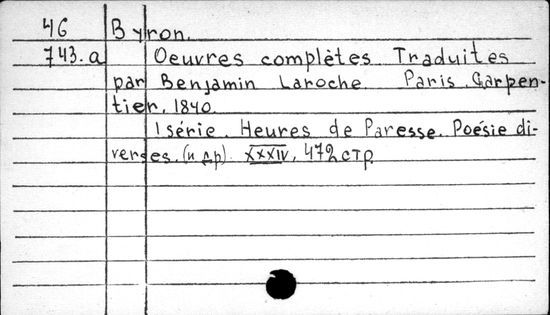 46 Byron.
743.a Oeuvres complètes Traduites
par Benjamin Laroche. Paris, Garpen-
tier, 1840.
1 série. Heures de Paresse. Poésie di-
verses. (и др). XXXIV, 472 стр.